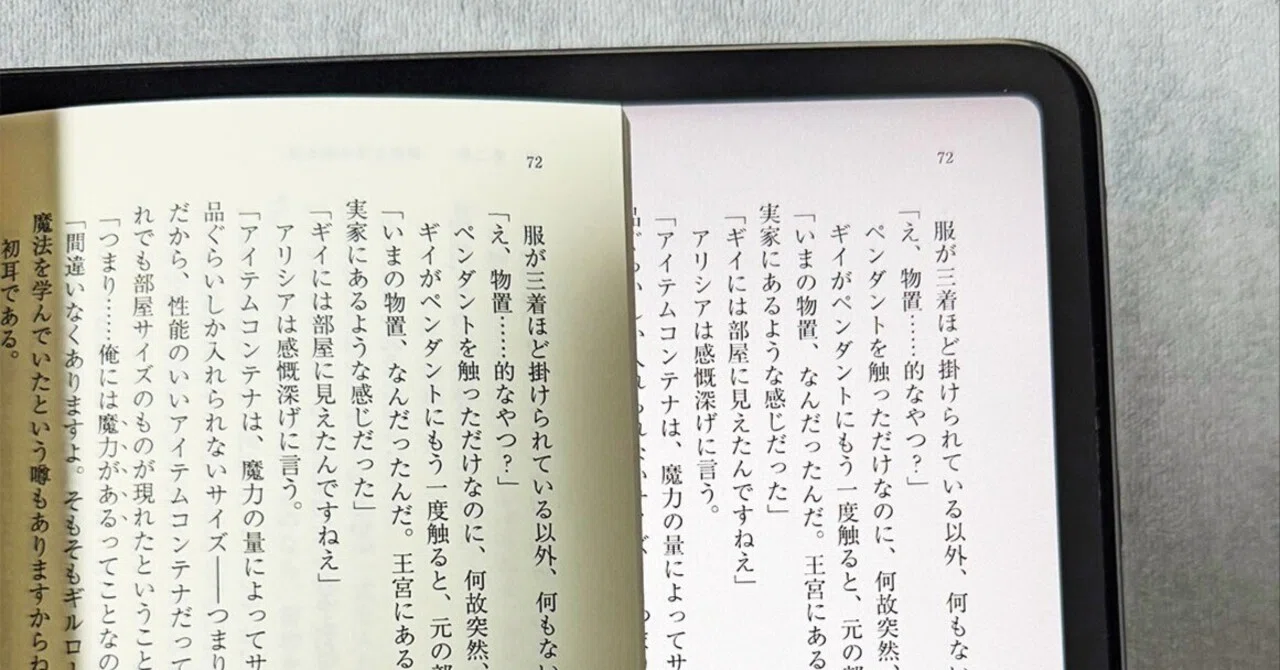 72
服が三着ほど掛けられている以外、何もない
「え、物置……的なやつ？」
ペンダントを触っただけなのに、何故突然、
ギイがペンダントにもう一度触ると、元の部
「いまの物置、なんだったんだ。王宮にある
実家にあるような感じだった」
「ギイには部屋に見えたんですねえ」
アリシアは感慨深げに言う。
「アイテムコンテナは、魔力の量によってサ
品ぐらいしか入れられないサイズ――つまり
だから、性能のいいアイテムコンテナだって
れでも部屋サイズのものが現れたということ
「つまり……俺には魔力があるってことなの
「間違いなくありますよ。そもそもギルロー
魔法を学んでいたという噂もありますからね
初耳である。
72
服が三着ほど掛けられている以外、何もない
「え、物置……的なやつ？」
ペンダントを触っただけなのに、何故突然、
ギイがペンダントにもう一度触ると、元の部
「いまの物置、なんだったんだ。王宮にある
実家にあるような感じだった」
「ギイには部屋に見えたんですねえ」
アリシアは感慨深げに言う。
「アイテムコンテナは、魔力の量によってサ